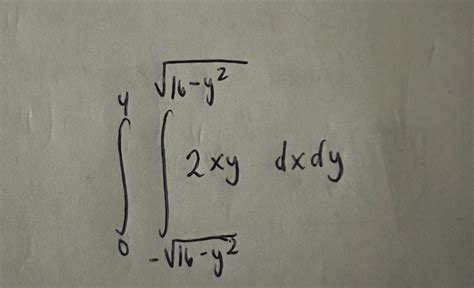 ∫₀⁴ ∫_{-√(16-y²)}^{√(16-y²)} 2xy dxdy